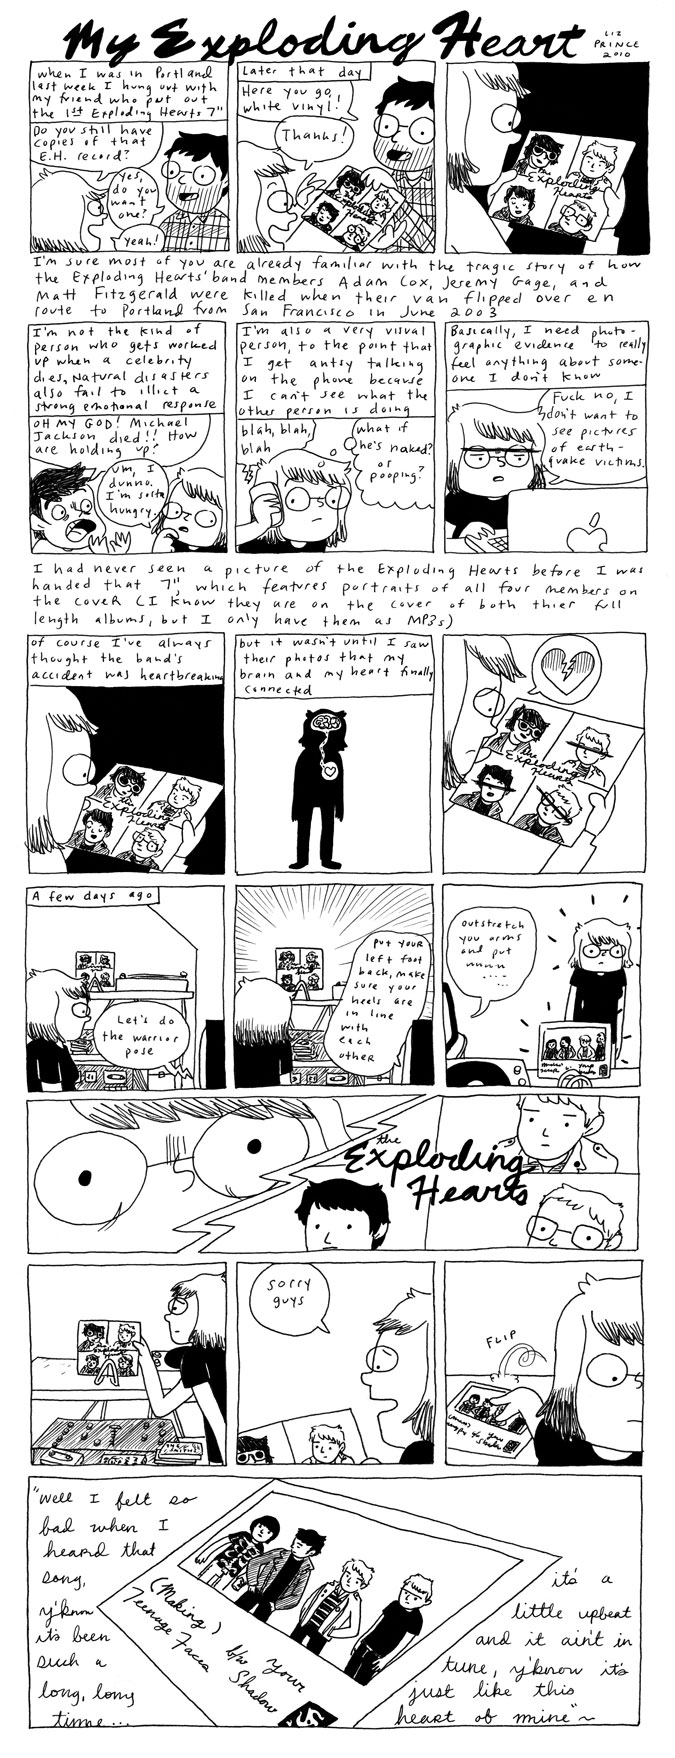 My Exploding Heart
LIZ
PRINCE
2010
when I was in Portland
last week I hung out with
my friend who put out
the 1st Exploding Hearts 7"
Do you still have
copies of that
E.H. record?
Yes,
do you
want
one?
Yeah!
Later that day
Here you go,
white vinyl!
Thanks!
the
Exploding
Hearts
I'm sure most of you are already familiar with the tragic story of how
the Exploding Hearts' band members Adam Cox, Jeremy Gage, and
Matt Fitzgerald were killed when their van flipped over en
route to Portland from San Francisco in June 2003
I'm not the kind of
person who gets worked
up when a celebrity
dies, Natural disasters
also fail to illict a
strong emotional response
OH MY GOD! Michael
Jackson died!! How
are holding up?
Um, I
dunno.
I'm sorta
hungry.
I'm also a very visual
person, to the point that
I get antsy talking
on the phone because
I can't see what the
other person is doing
blah, blah,
blah
what if
he's naked?
or
pooping?
Basically, I need photo-
graphic evidence to really
feel anything about some-
one I don't know
Fuck no, I
don't want to
see pictures
of earth-
quake victims.
I had never seen a picture of the Exploding Hearts before I was
handed that 7", which features portraits of all four members on
the cover (I know they are on the cover of both thier full
length albums, but I only have them as MP3s)
of course I've always
thought the band's
accident was heartbreaking
but it wasn't until I saw
their photos that my
brain and my heart finally
connected
the
Exploding
Hearts
the
Exploding
Hearts
A few days ago
Let's do
the warrior
pose
put your
left foot
back, make
sure your
heels are
in line
with
each
other
outstretch
you arms
and put
the
Exploding
Hearts
sorry
guys
FLIP
"Well I felt so
bad when I
heard that
song,
y'know
it's been
such a
long, long
time...
(Making)
Teenage Faces
b/w Your
Shadow
it's a
little upbeat
and it ain't in
tune, y'know it's
just like this
heart of mine"~